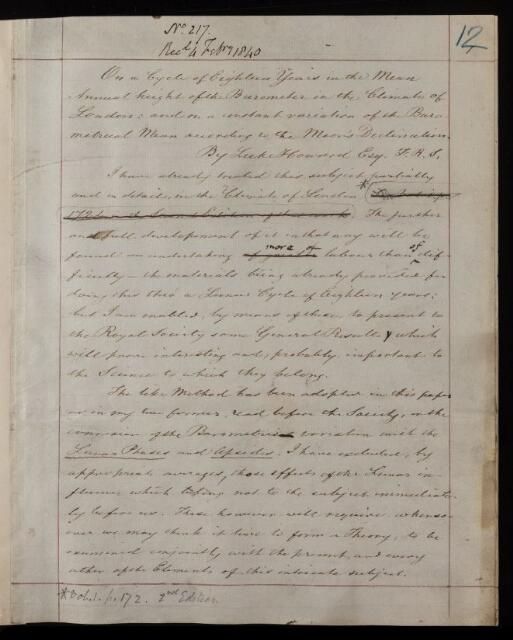 No. 217.
Recd. 4 Febry 1840
12
On a Cycle of Eighteen Years in the Mean
Annual height of the Barometer in the Climate of
London; and on a constant variation of the Baro-
metrical Mean according to the Moon's Declination.
By Luke Howard Esq. F.R.S.
I have already treated this subject, partially
and in detail, in the Climate of London *
The further
and full development of it in that way will be
found an undertaking more of labour than of dif-
ficulty — the materials being already provided for
doing this thro' a Lunar Cycle of Eighteen years:
but I am enabled, by means of these to present to
the Royal Society some General Results, which
will prove interesting and, probably, important to
the Science to which they belong.
The like Method has been adopted in this paper
as in my two former, read before the Society, on the
connexion of the Barometric variation with the
Lunar Phases and Apsides. I have excluded, by
appropriate averages, those effects of the Lunar in-
fluence which belong not to the subject immediate-
ly before us. These however will require, whenso-
ever we may think it time to form a Theory, to be
examined conjointly with the present and every
other of the Elements of this intricate subject.
* Vol. 1. p. 172. 2nd Edition.